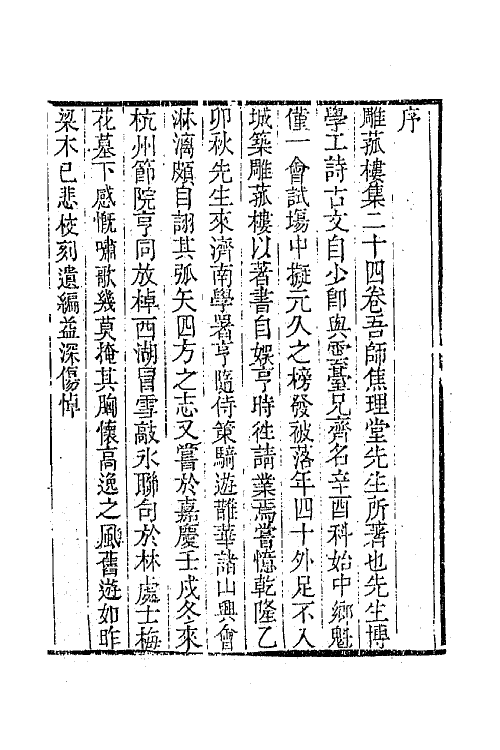 序
雕菰樓集二十四卷吾師焦理堂先生所著也先生博
學工詩古文自少即與雲臺兄齊名辛酉科始中鄉魁
僅一會試場中擬元久之榜發被落年四十外足不入
城築雕菰樓以著書自娛亨時往請業焉嘗憶乾隆乙
卯秋先生來濟南學署亨隨侍策騎遊鵲華諸山興會
淋漓頗自詡其弧矢四方之志又嘗於嘉慶壬戌冬來
杭州節院亨同放棹西湖冒雪敲冰聯句於林處士梅
花墓下感慨嘯歌幾莫掩其胸懷高逸之風舊遊如昨
梁木已悲校刻遺編益深傷悼